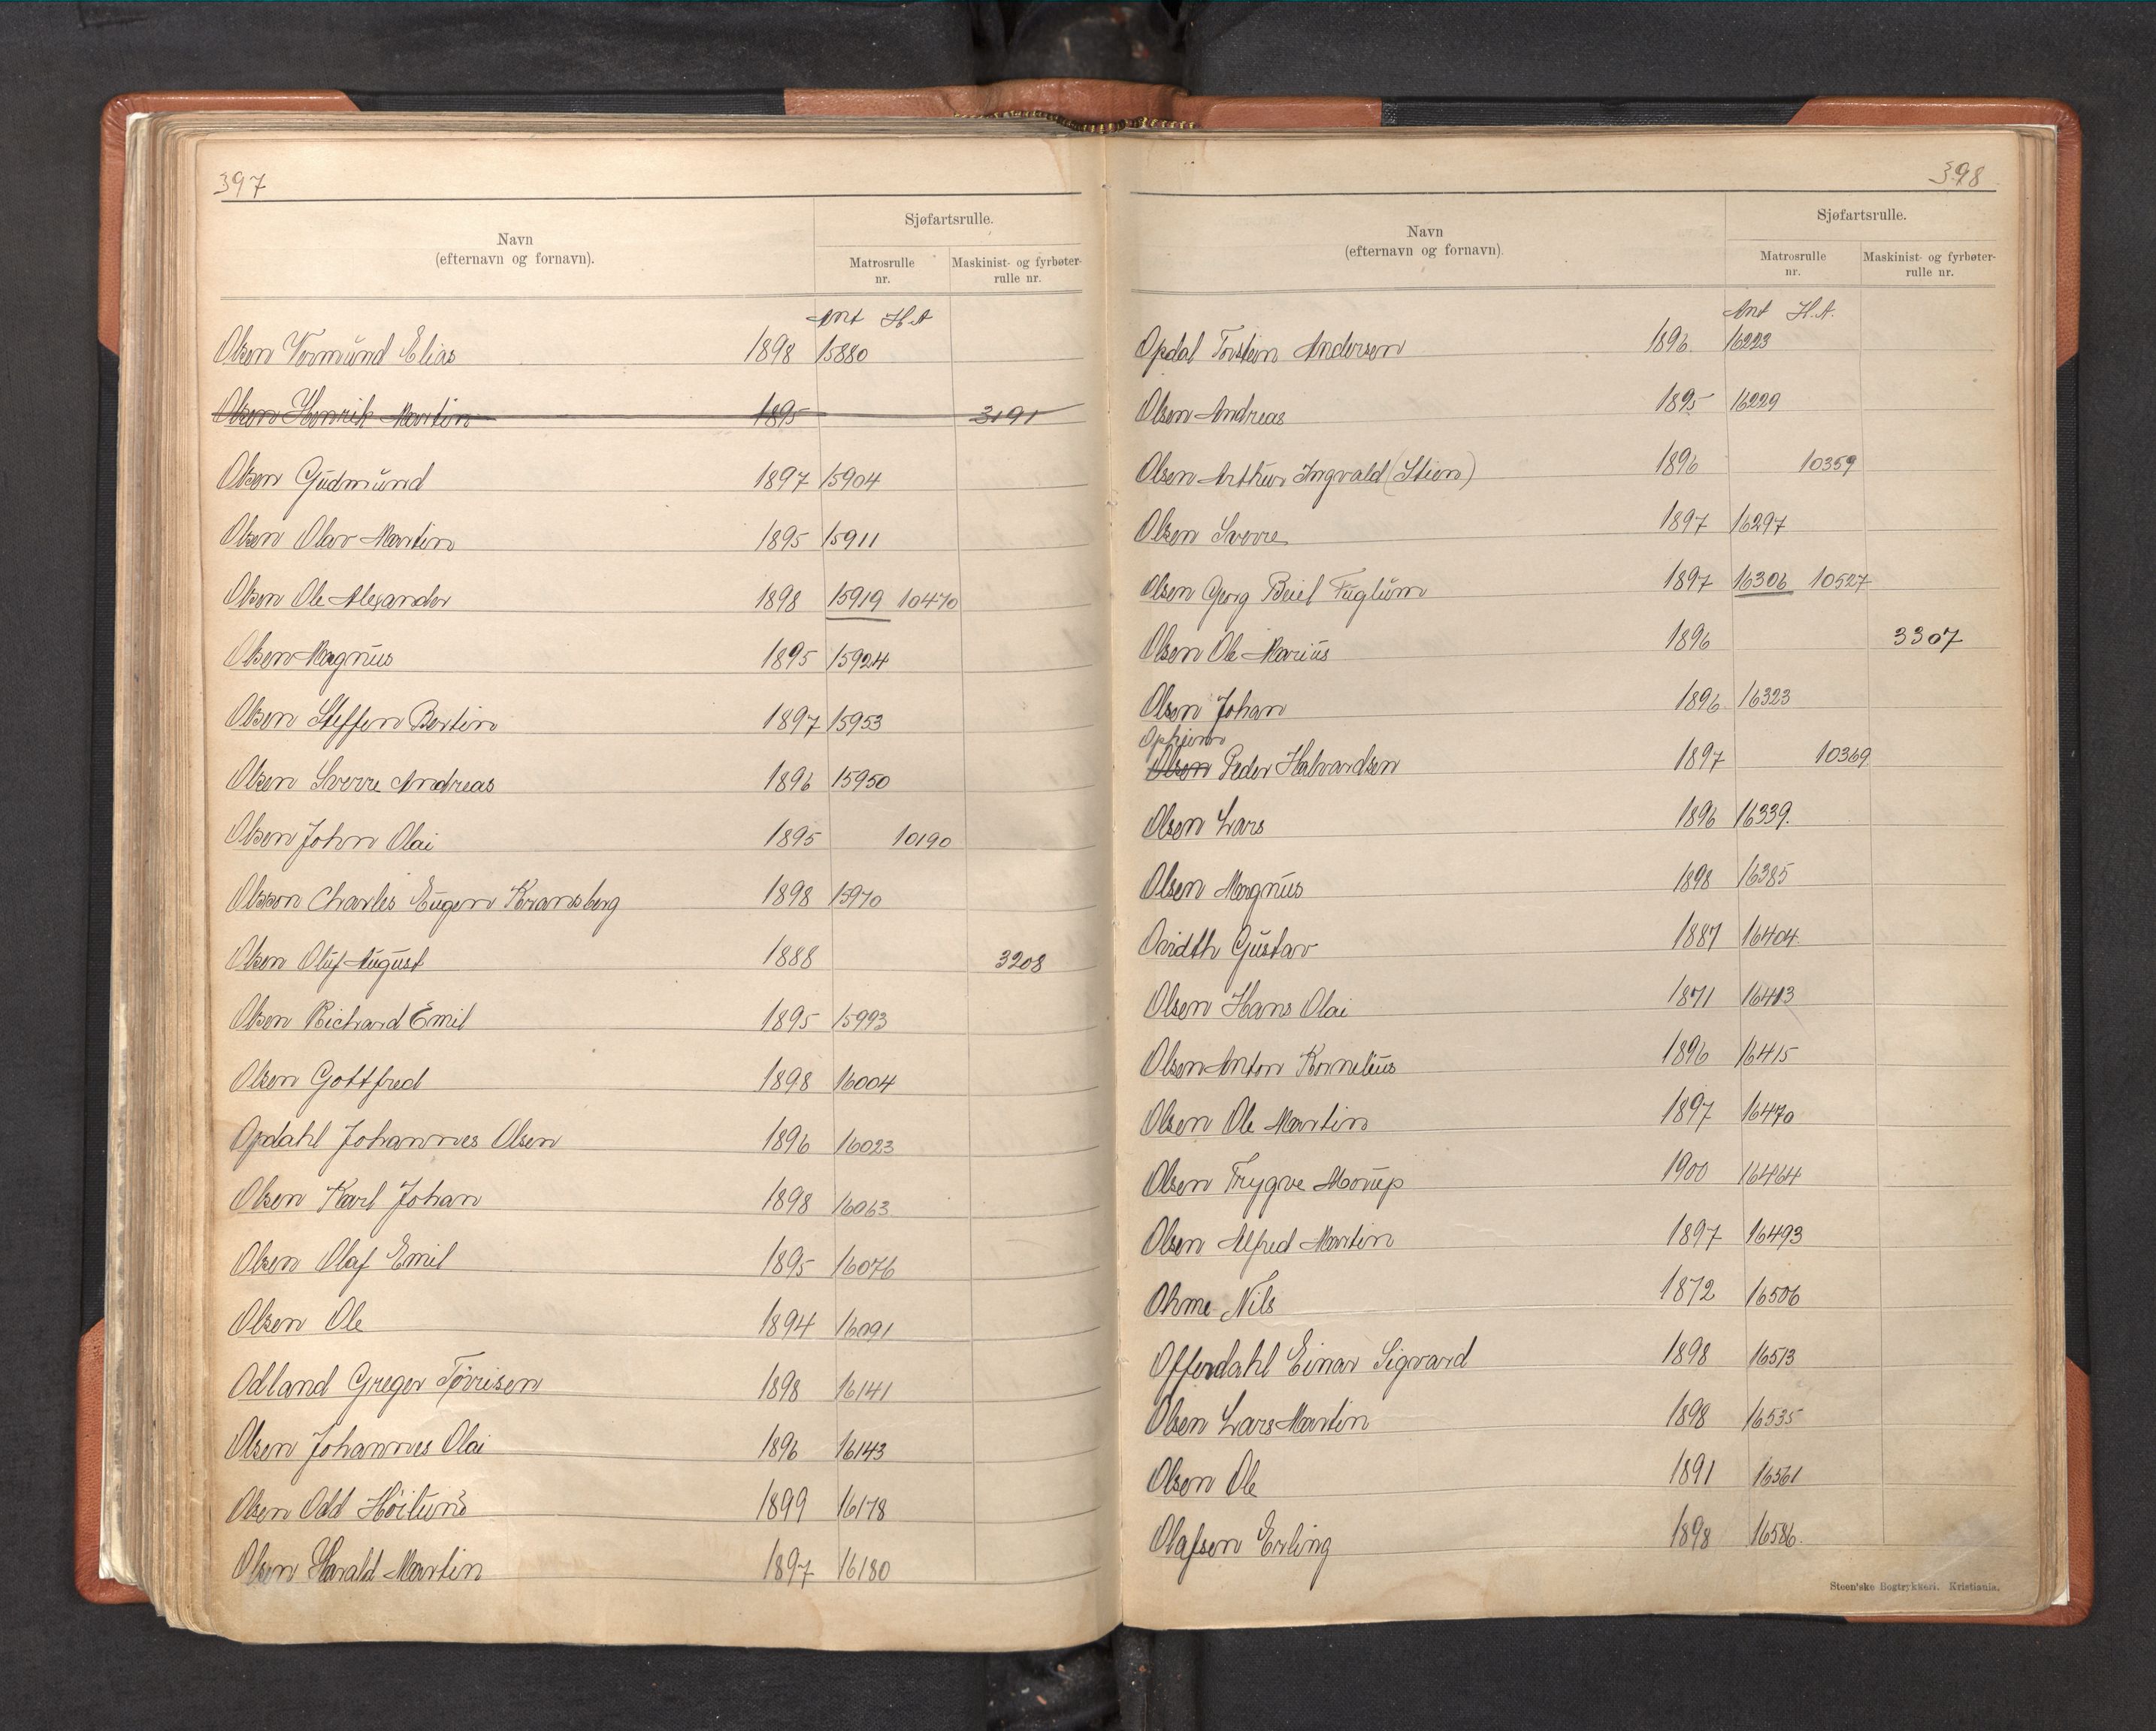 397
Navn
(efternavn og fornavn).
Sjøfartsrulle.
Matrosrulle
nr.
Maskinist- og fyrbøter-
rulle nr.
Ant H.A
Olsen Vormund Elias 1898 15880
Olsen Henrik Martin 1895 3191
Olsen Gudmund 1897 15904
Olsen Olav Martin 1895 15911
Olsen Ole Alexander 1898 15919 10470
Olsen Magnus 1895 15924
Olsen Steffen Bertin 1897 15953
Olsen Sverre Andreas 1896 15950
Olsen John Olai 1895 10190
Olsson Charles Eugen Kransberg 1898 15970
Olsen Oluf August 1888 3208
Olsen Richard Emil 1895 15993
Olsen Gottfred 1898 16004
Opdahl Johannes Olsen 1896 16023
Olsen Karl Johan 1898 16063
Olsen Olaf Emil 1895 16076
Olsen Ole 1894 16091
Odland Greger Tørrisen 1898 16141
Olsen Johannes Olai 1896 16143
Olsen Odd Höilund 1899 16178
Olsen Harald Martin 1897 16180
398
Navn
(efternavn og fornavn).
Sjøfartsrulle.
Matrosrulle
nr.
Maskinist- og fyrbøter-
rulle nr.
Ant H.A.
Opdal Torstein Andersen 1896 16223
Olsen Andreas 1895 16229
Olsen Arthur Ingvald (Stien) 1896 10359
Olsen Sverre 1897 16297
Olsen Georg Fuglum 1897 16306 10527
Olsen Ole Marius 1896 3307
Olsen Johan 1896 16323
Opheim
Olsen Peder Halvardsen 1897 10369
Olsen Lars 1896 16339.
Olsen Magnus 1898 16385
Gustav 1887 16404
Olsen Hans Olai 1871 16413
Olsen Anton Kornelius 1896 16415
Olsen Ole Martin 1897 16470
Olsen Trygve 1900 16464
Olsen Alfred Martin 1897 16493
Ohme Nils 1872 16506
Offerdahl Einar Sigvard 1898 16513
Olsen Lars Martin 1898 16535
Olsen Ole 1891 16561
Olafsen Erling 1898 16586.
Steen'ske Bogtrykkeri. Kristiania.